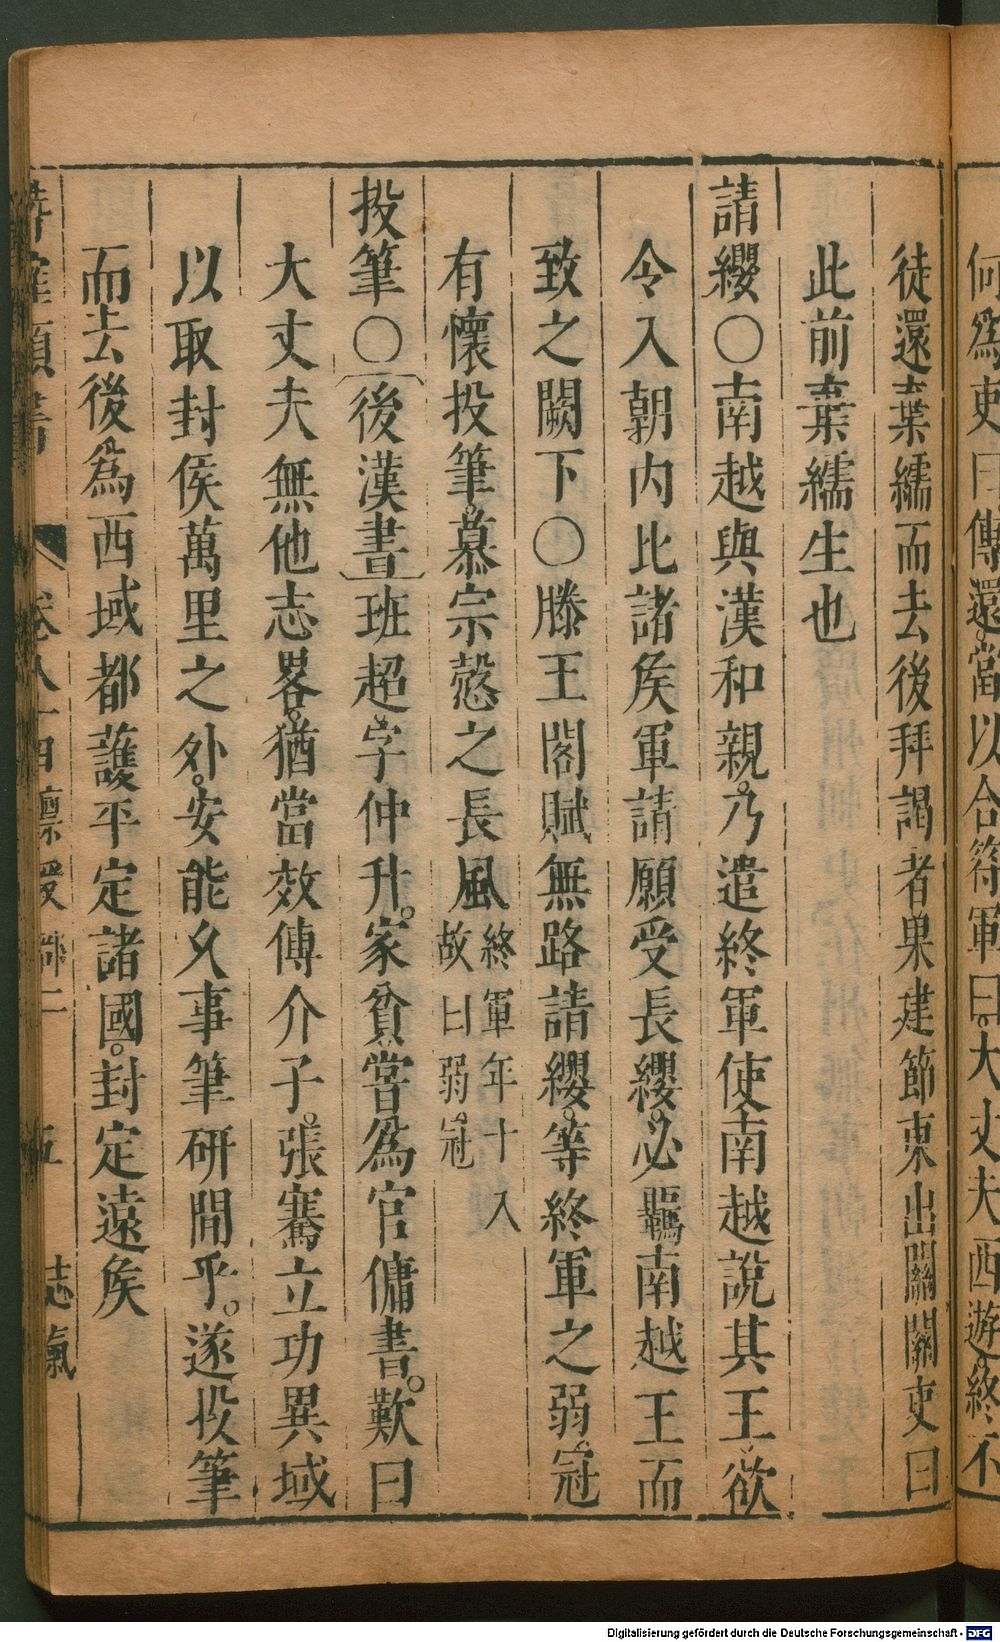 何爲吏曰傳還當以合符軍曰大丈夫西遊終不
徒還棄繻而去後拜謁者果建節東出關關吏曰
此前棄繻生也
請纓〇南越與漢和親乃遣終軍使南越說其王欲
令入朝內比諸矦軍請願受長纓必羈南越王而
致之闕下〇滕王閣賦無路請纓等終軍之弱冠
有懷投筆慕宗愨之長風終軍年十八
故曰弱冠
投筆〇〔後漢書〕班超字仲升家貧嘗爲官傭書歎曰
大丈夫無他志畧猶當效傅介子張騫立功異域
以取封侯萬里之外安能久事筆研間乎遂投筆
而去後爲西域都護平定諸國封定遠矦
卷八十四 禀受部二 五 志氣
Digitalisierung gefördert durch die Deutsche Forschungsgemeinschaft - DFG